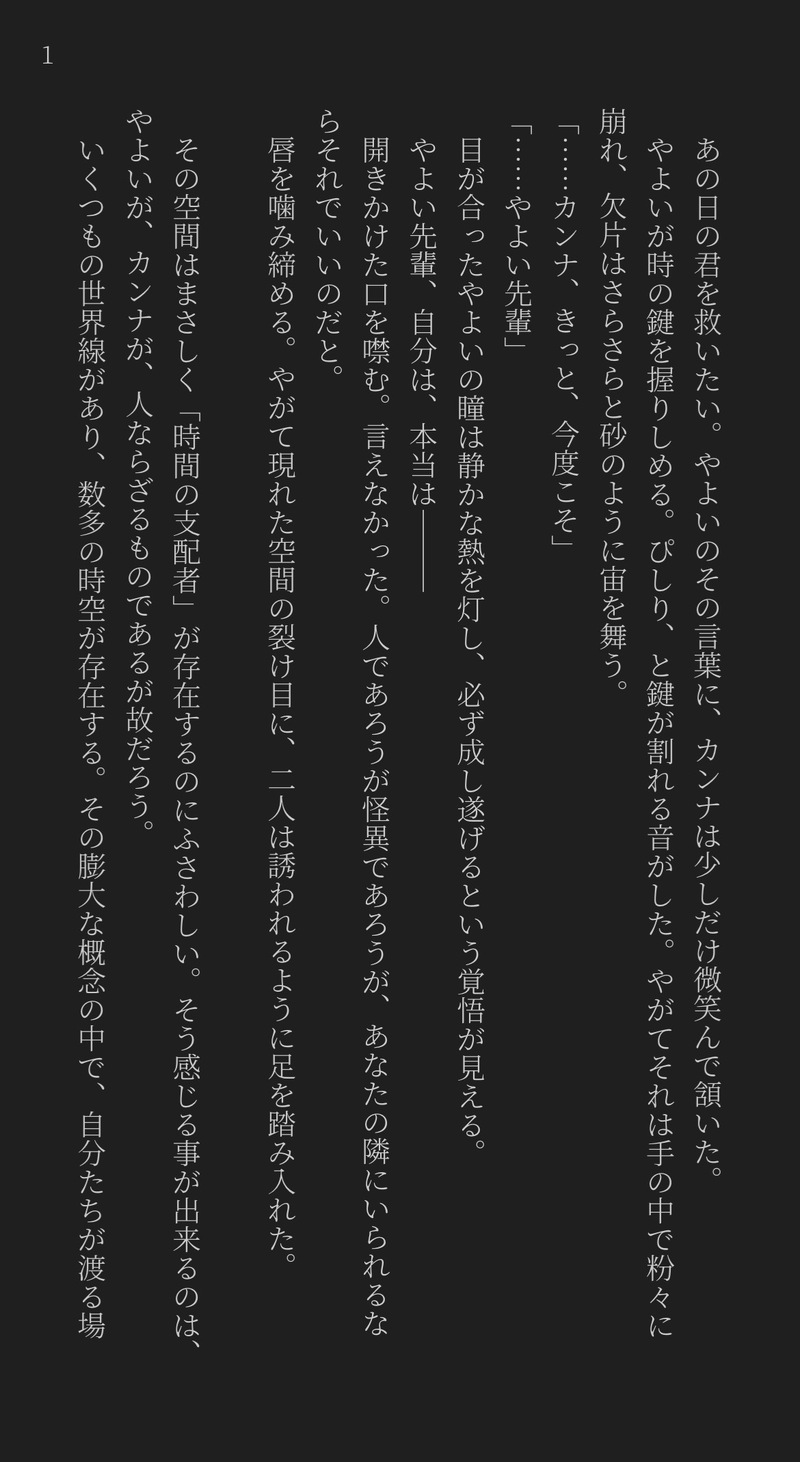 1
　あの日の君を救いたい。やよいのその言葉に、カンナは少しだけ微笑んで頷いた。
　やよいが時の鍵を握りしめる。ぴしり、と鍵が割れる音がした。やがてそれは手の中で粉々に
崩れ、欠片はさらさらと砂のように宙を舞う。
「……カンナ、きっと、今度こそ」
「……やよい先輩」
　目が合ったやよいの瞳は静かな熱を灯し、必ず成し遂げるという覚悟が見える。
　やよい先輩、自分は、本当は――
　開きかけた口を噤む。言えなかった。人であろうが怪異であろうが、あなたの隣にいられるな
らそれでいいのだと。
　唇を噛み締める。やがて現れた空間の裂け目に、二人は誘われるように足を踏み入れた。
　その空間はまさしく「時間の支配者」が存在するのにふさわしい。そう感じる事が出来るのは、
やよいが、カンナが、人ならざるものであるが故だろう。
　いくつもの世界線があり、数多の時空が存在する。その膨大な概念の中で、自分たちが渡る場